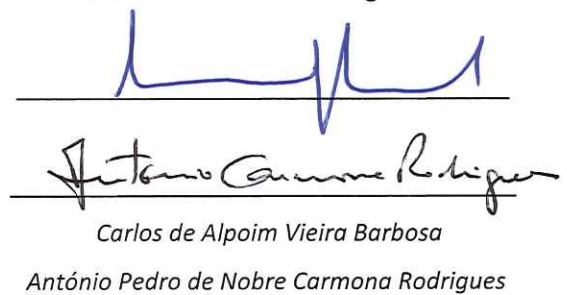 António Carmona Rodrigues
Carlos de Alpoim Vieira Barbosa
António Pedro de Nobre Carmona Rodrigues